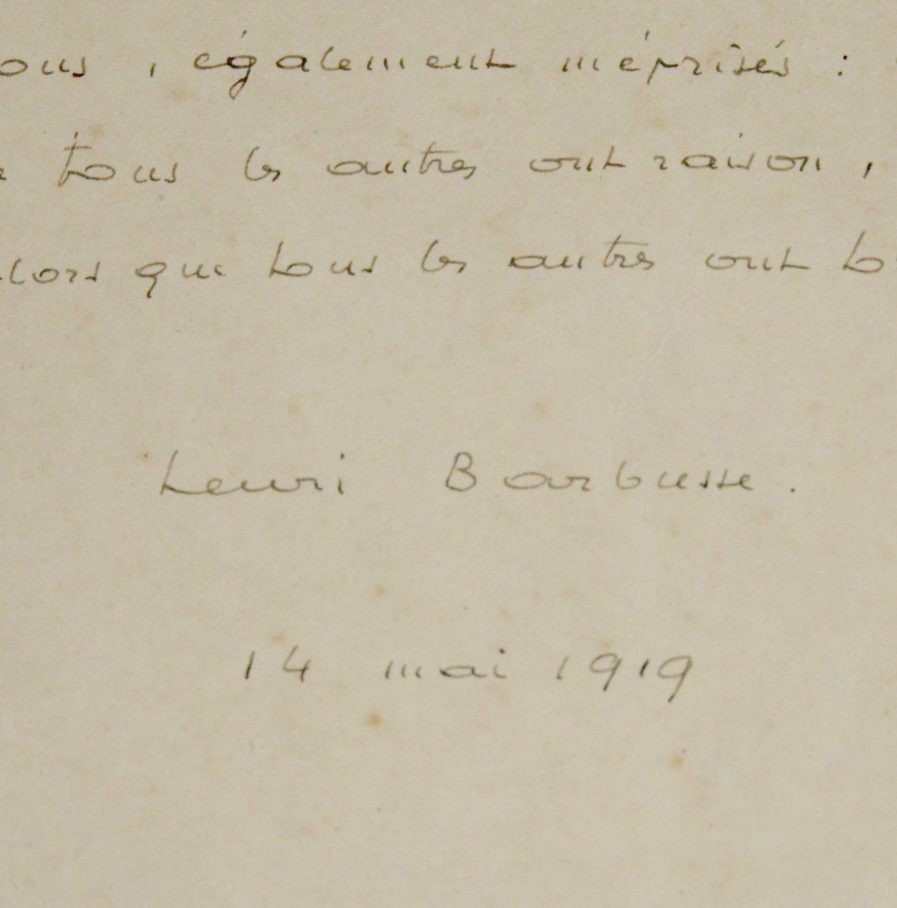 ous, également méprisés :
tous les autres ont raison,
lors que tous les autres ont to
Henri Barbusse.
14 mai 1919